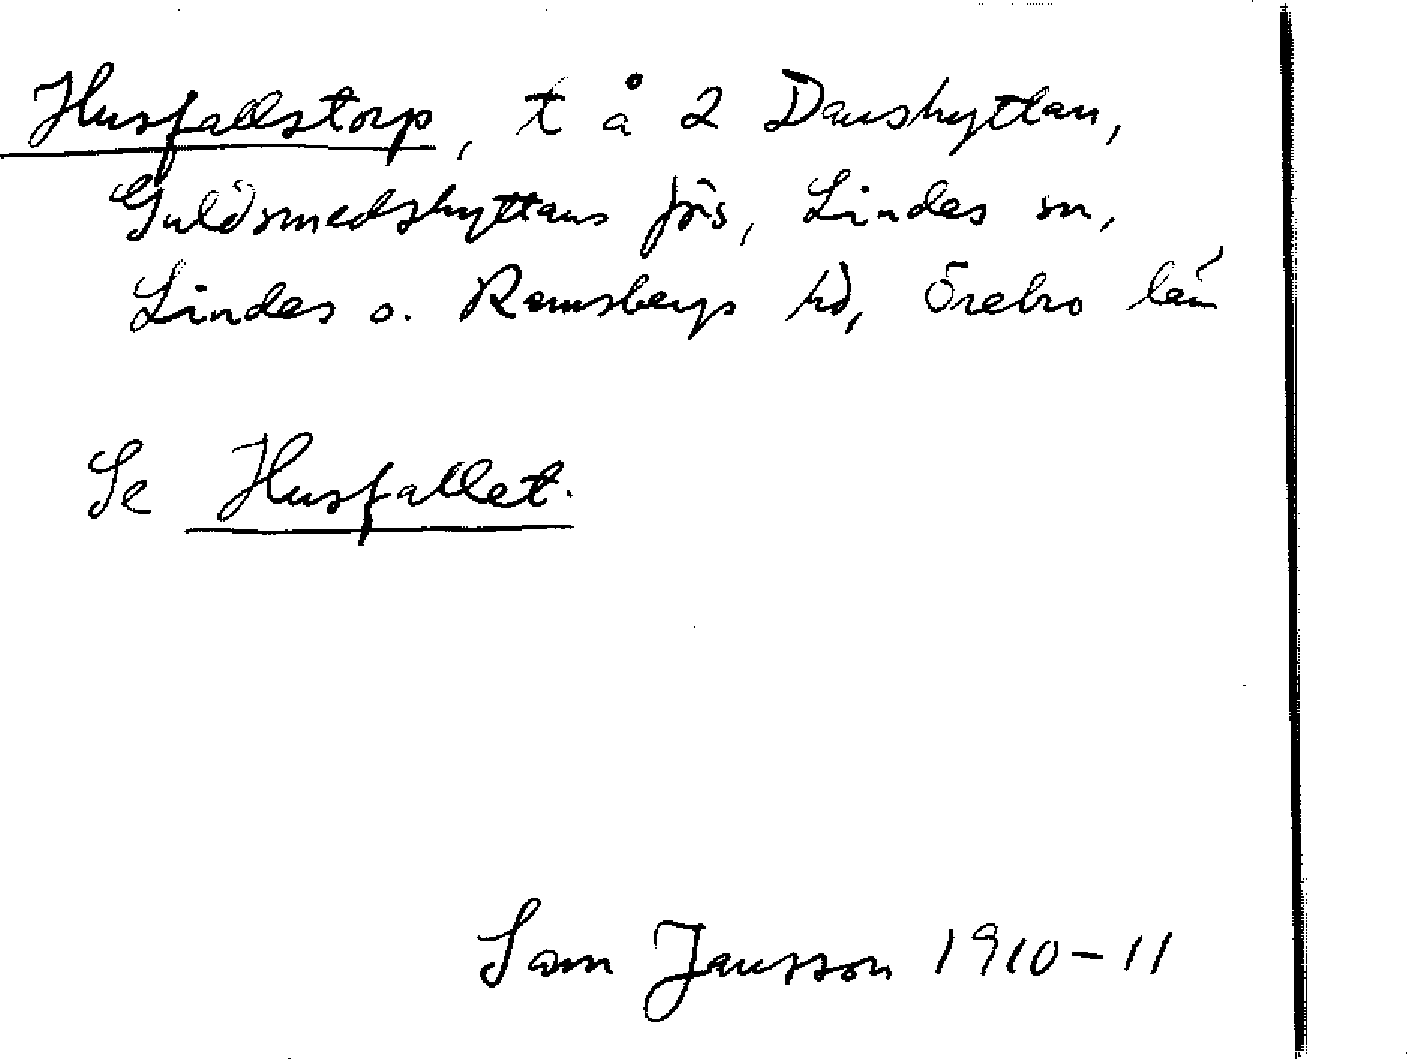 Husfallstorp, t å 2 Danshyttan,
Guldsmedshyttans förs, Lindes sn,
Lindes o. Ramsbergs hd, Örebro län
Se Husfallet.
Sam Jansson 1910-11